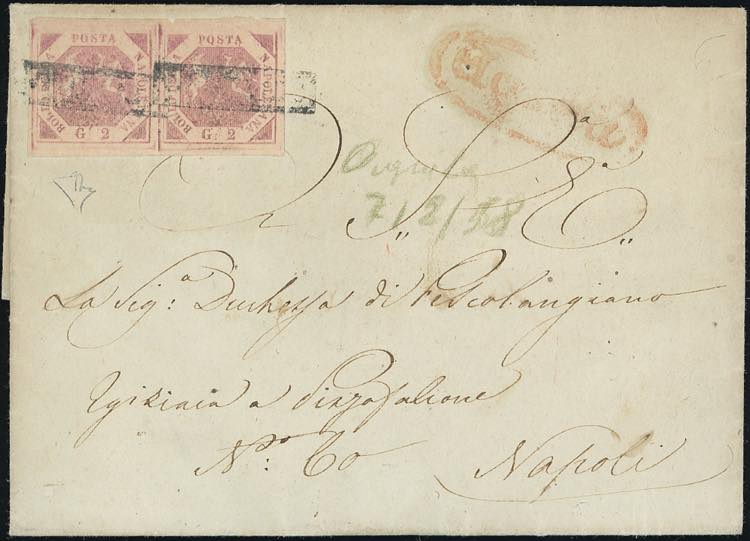 POSTA NAPOLETANA BOLLO G. 2
POSTA NAPOLETANA BOLLO G. 2
7/2/58
A S. E.
La Sig.a Duchessa di Pescolangiano
Egiziaca a Pizzofalcone
No: 60
Napoli